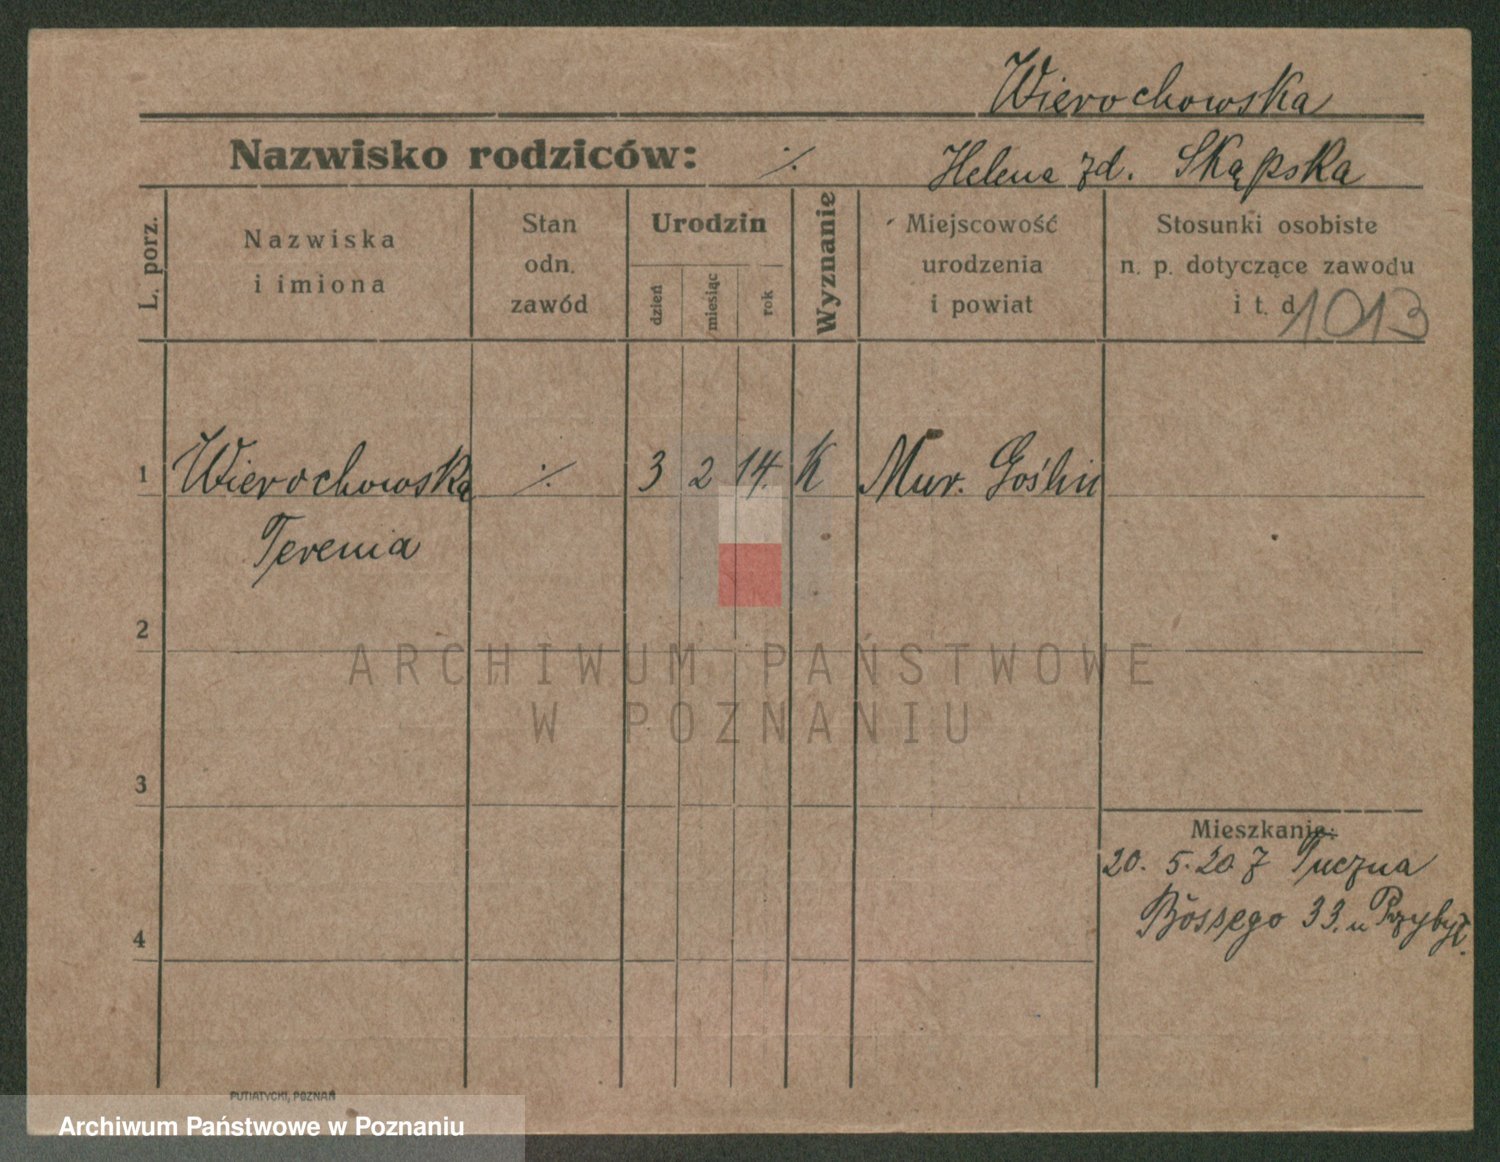 Wierochowska
Nazwisko rodziców: ·/. Helena zd. Skąpska
L. porz.
Nazwiska
i imiona
Stan
odn.
zawód
Urodzin
dzień
miesiąc
rok
Wyznanie
Miejscowość
urodzenia
i powiat
Stosunki osobiste
n. p. dotyczące zawodu
i t. d.
1013
1 Wierochowska ·/. 3 2 14. K Mur. Goślin
Terenia
2
ARCHIWUM PAŃSTWOWE
W POZNANIU
3
Mieszkanie:
20. 5. 20 z Tuczna
Bossego 33. u Przybył.
4
PUTIATYCKI, POZNAŃ
Archiwum Państwowe w Poznaniu